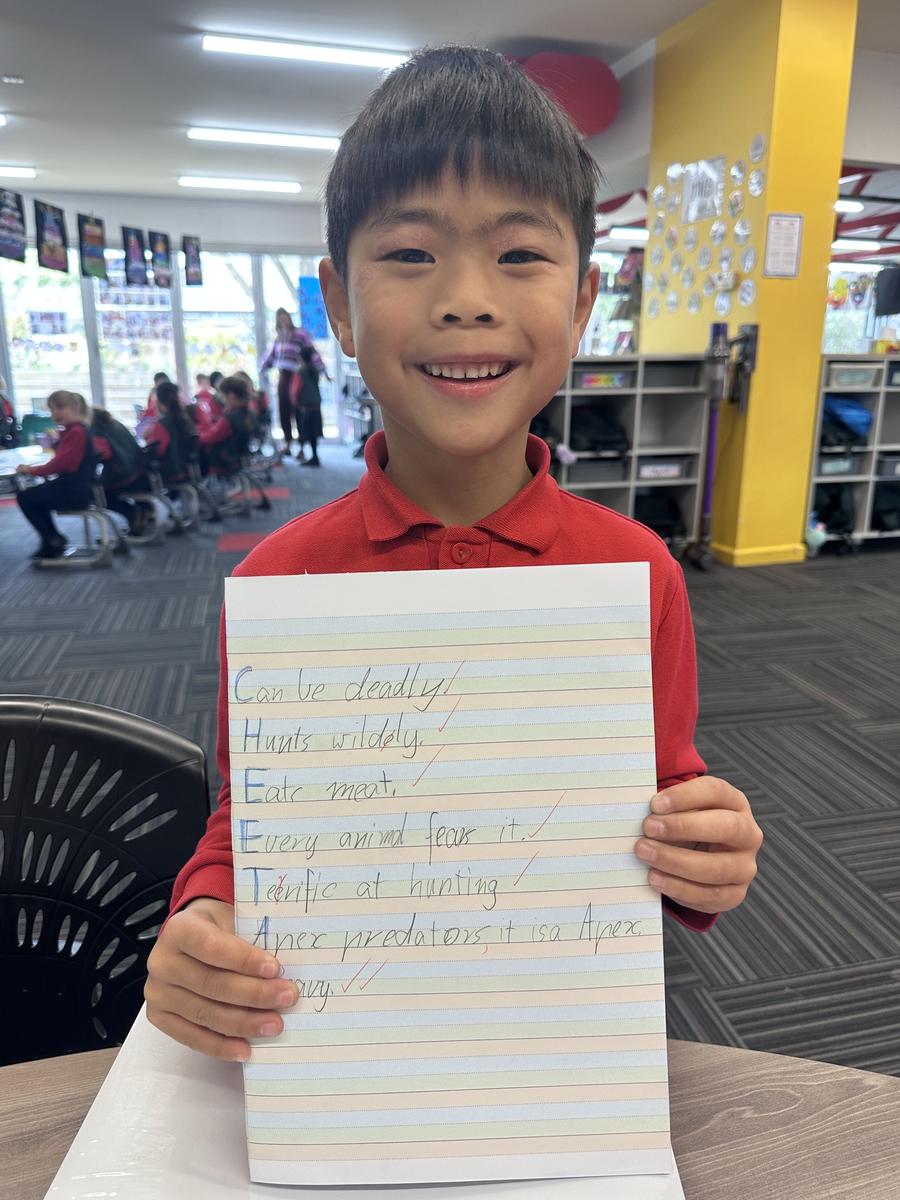 Can be deadly
Hunts wildely.
Eats meat.
Every animal fears it.
Terrific at hunting
Apex predators, it is a Apex.